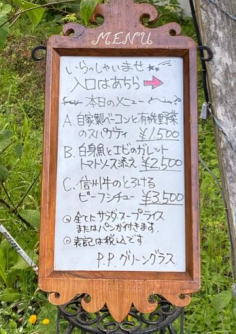 MENU
いらっしゃいませ
入口はあちら→
本日のメニュー
A. 自家製ベーコンと有機野菜
のスパゲティ ¥1,500
B. 白身魚とエビのガレット
トマトソース添え ¥2,500
C. 信州牛のとろける
ビーフシチュー ¥3,500
◎全てにサラダ・スープ・ライス
またはパンが付きます。
◎表記は税込です
P.P.グリーングラス